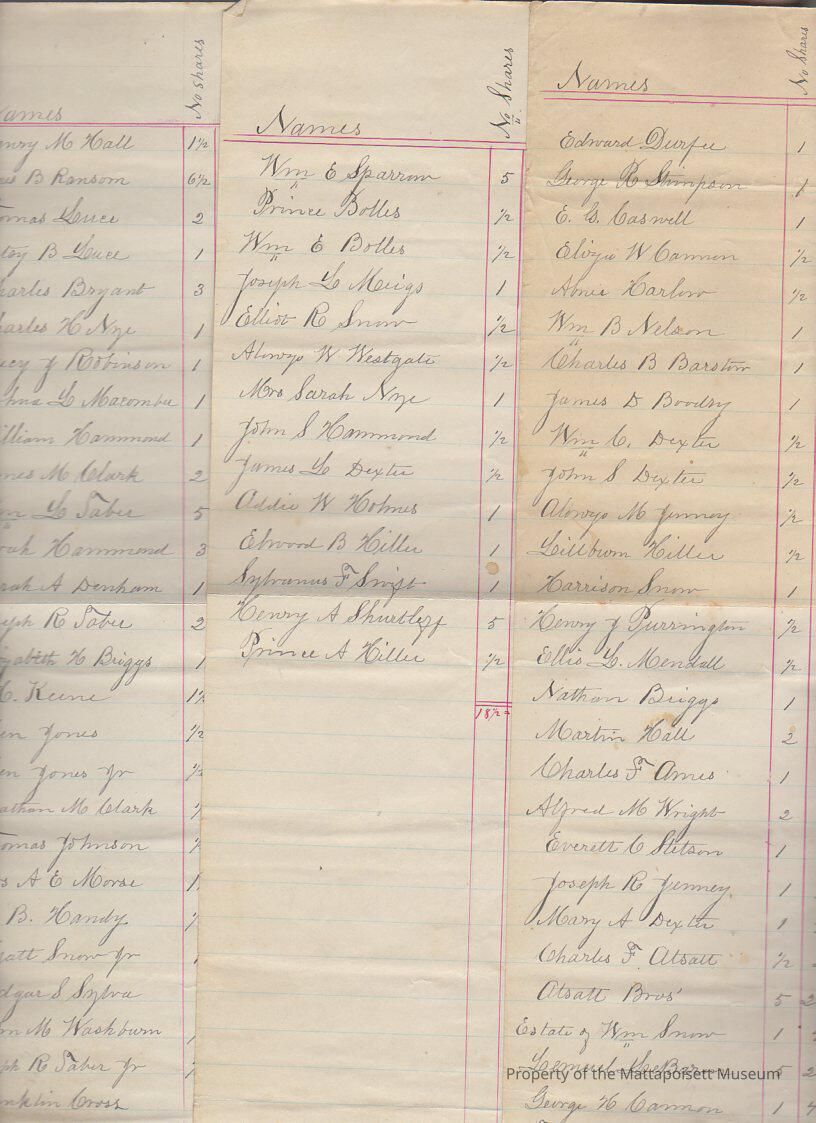 No Shares
ames
enry M Hall 1½
es B Ransom 6½
omas Luce 2
tsy B Luce 1
harles Bryant 3
harles H Nye 1
ucy J Robinson 1
L Macomber 1
illiam Hammond 1
mes M Clark 2
m L Taber 5
oah Hammond 3
rah A Denham 1
seph R Taber 2
izabeth H Briggs 1
C. Keene 1½
en Jones ½
en Jones Jr ½
athan M Clark
omas Johnson
s A E Morse 1
B. Handy
iatt Snow Jr
dgar S Sylva
m M Washburn
ph R Taber Jr
nklin Cross
Names No Shares
Wm E Sparrow 5
Prince Bolles ½
Wm E Bolles ½
Joseph L Meigs 1
Elliot R Snow ½
Alonzo W Westgate ½
Mrs Sarah Nye 1
John S Hammond ½
James L Dexter ½
Addie W Holmes 1
Elwood B Hiller 1
Sylvanus F Swift 1
Henry A Shurtleff 5
Prince A Hiller ½
18½
Names No Shares
Edward Durfee 1
George R Stimpson 1
E. G. Caswell 1
W Cannon ½
Abner Harlow ½
Wm B Nelson 1
Charles B Barstow 1
James D Boodry 1
Wm C. Dexter ½
John S Dexter ½
Alonzo M Jenney ½
Lillburn Hiller ½
Harrison Snow 1
Henry J Purrington ½
Ellis L. Mendall ½
Nathan Briggs 1
Martin Hall 2
Charles F Ames 1
Alfred M Wright 2
Everett C Stetson 1
Joseph R Jenney 1
Mary A Dexter 1
Charles F Atsatt ½
Atsatt Bros' 5
Estate of Wm Snow 1
Lemuel LeBaron 5
Property of the Mattapoisett Museum
George H Cannon 1